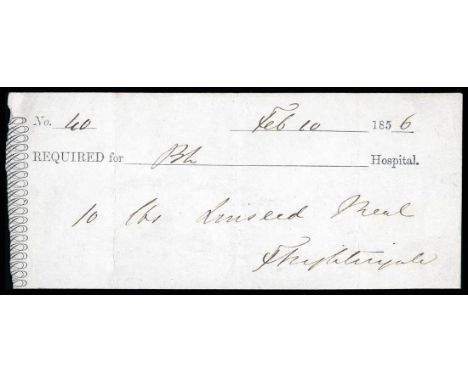 No. 40 Feb 10 1856
REQUIRED for Bk Hospital.
10 lbs Linseed Meal
F Nightingale